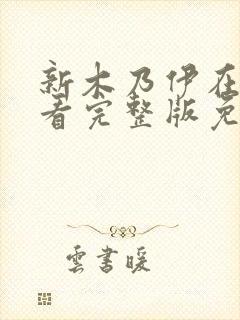 新木乃伊在
看完整版免
雲書暖